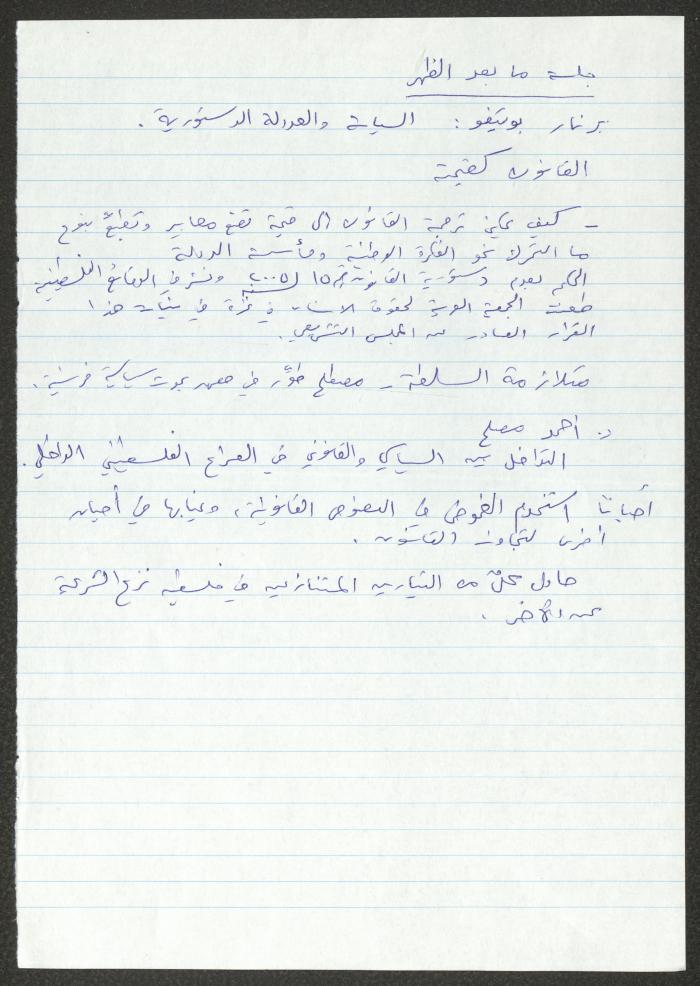 جلسة ما بعد الظهر
برنار بوتيفو : السياسة والعدالة الدستورية .
القانون كقيمة
- كيف يمكن ترجمة القانون الى قيمة تضع معايير وتطبع بنوع
ما التحرك نحو الفكرة الوطنية ومأسسة الدولة
الحكم بعدم دستورية القانون رقم ١٥ لسنة ٢٠٠٥ ونشر في الوقائع الفلسطينية
طعنت الجمعية العربية لحقوق الانسان في غزة في هذا
القرار الصادر عن المجلس التشريعي .
متلازمة السلطة - مصطلح طوّر في معهد بحوث سياسية فرنسية .
د. احمد مصلح
التداخل بين السياسي والقانوني في الصراع الفلسطيني الداخلي .
أحيانا استخدم الغموض في النصوص القانونية ، وغيابها في أحيان
اخرى لتجاوز القانون .
حاول كلٌ من التيارين المتنازعين في فلسطين نزع الشرعية
عن الآخر .